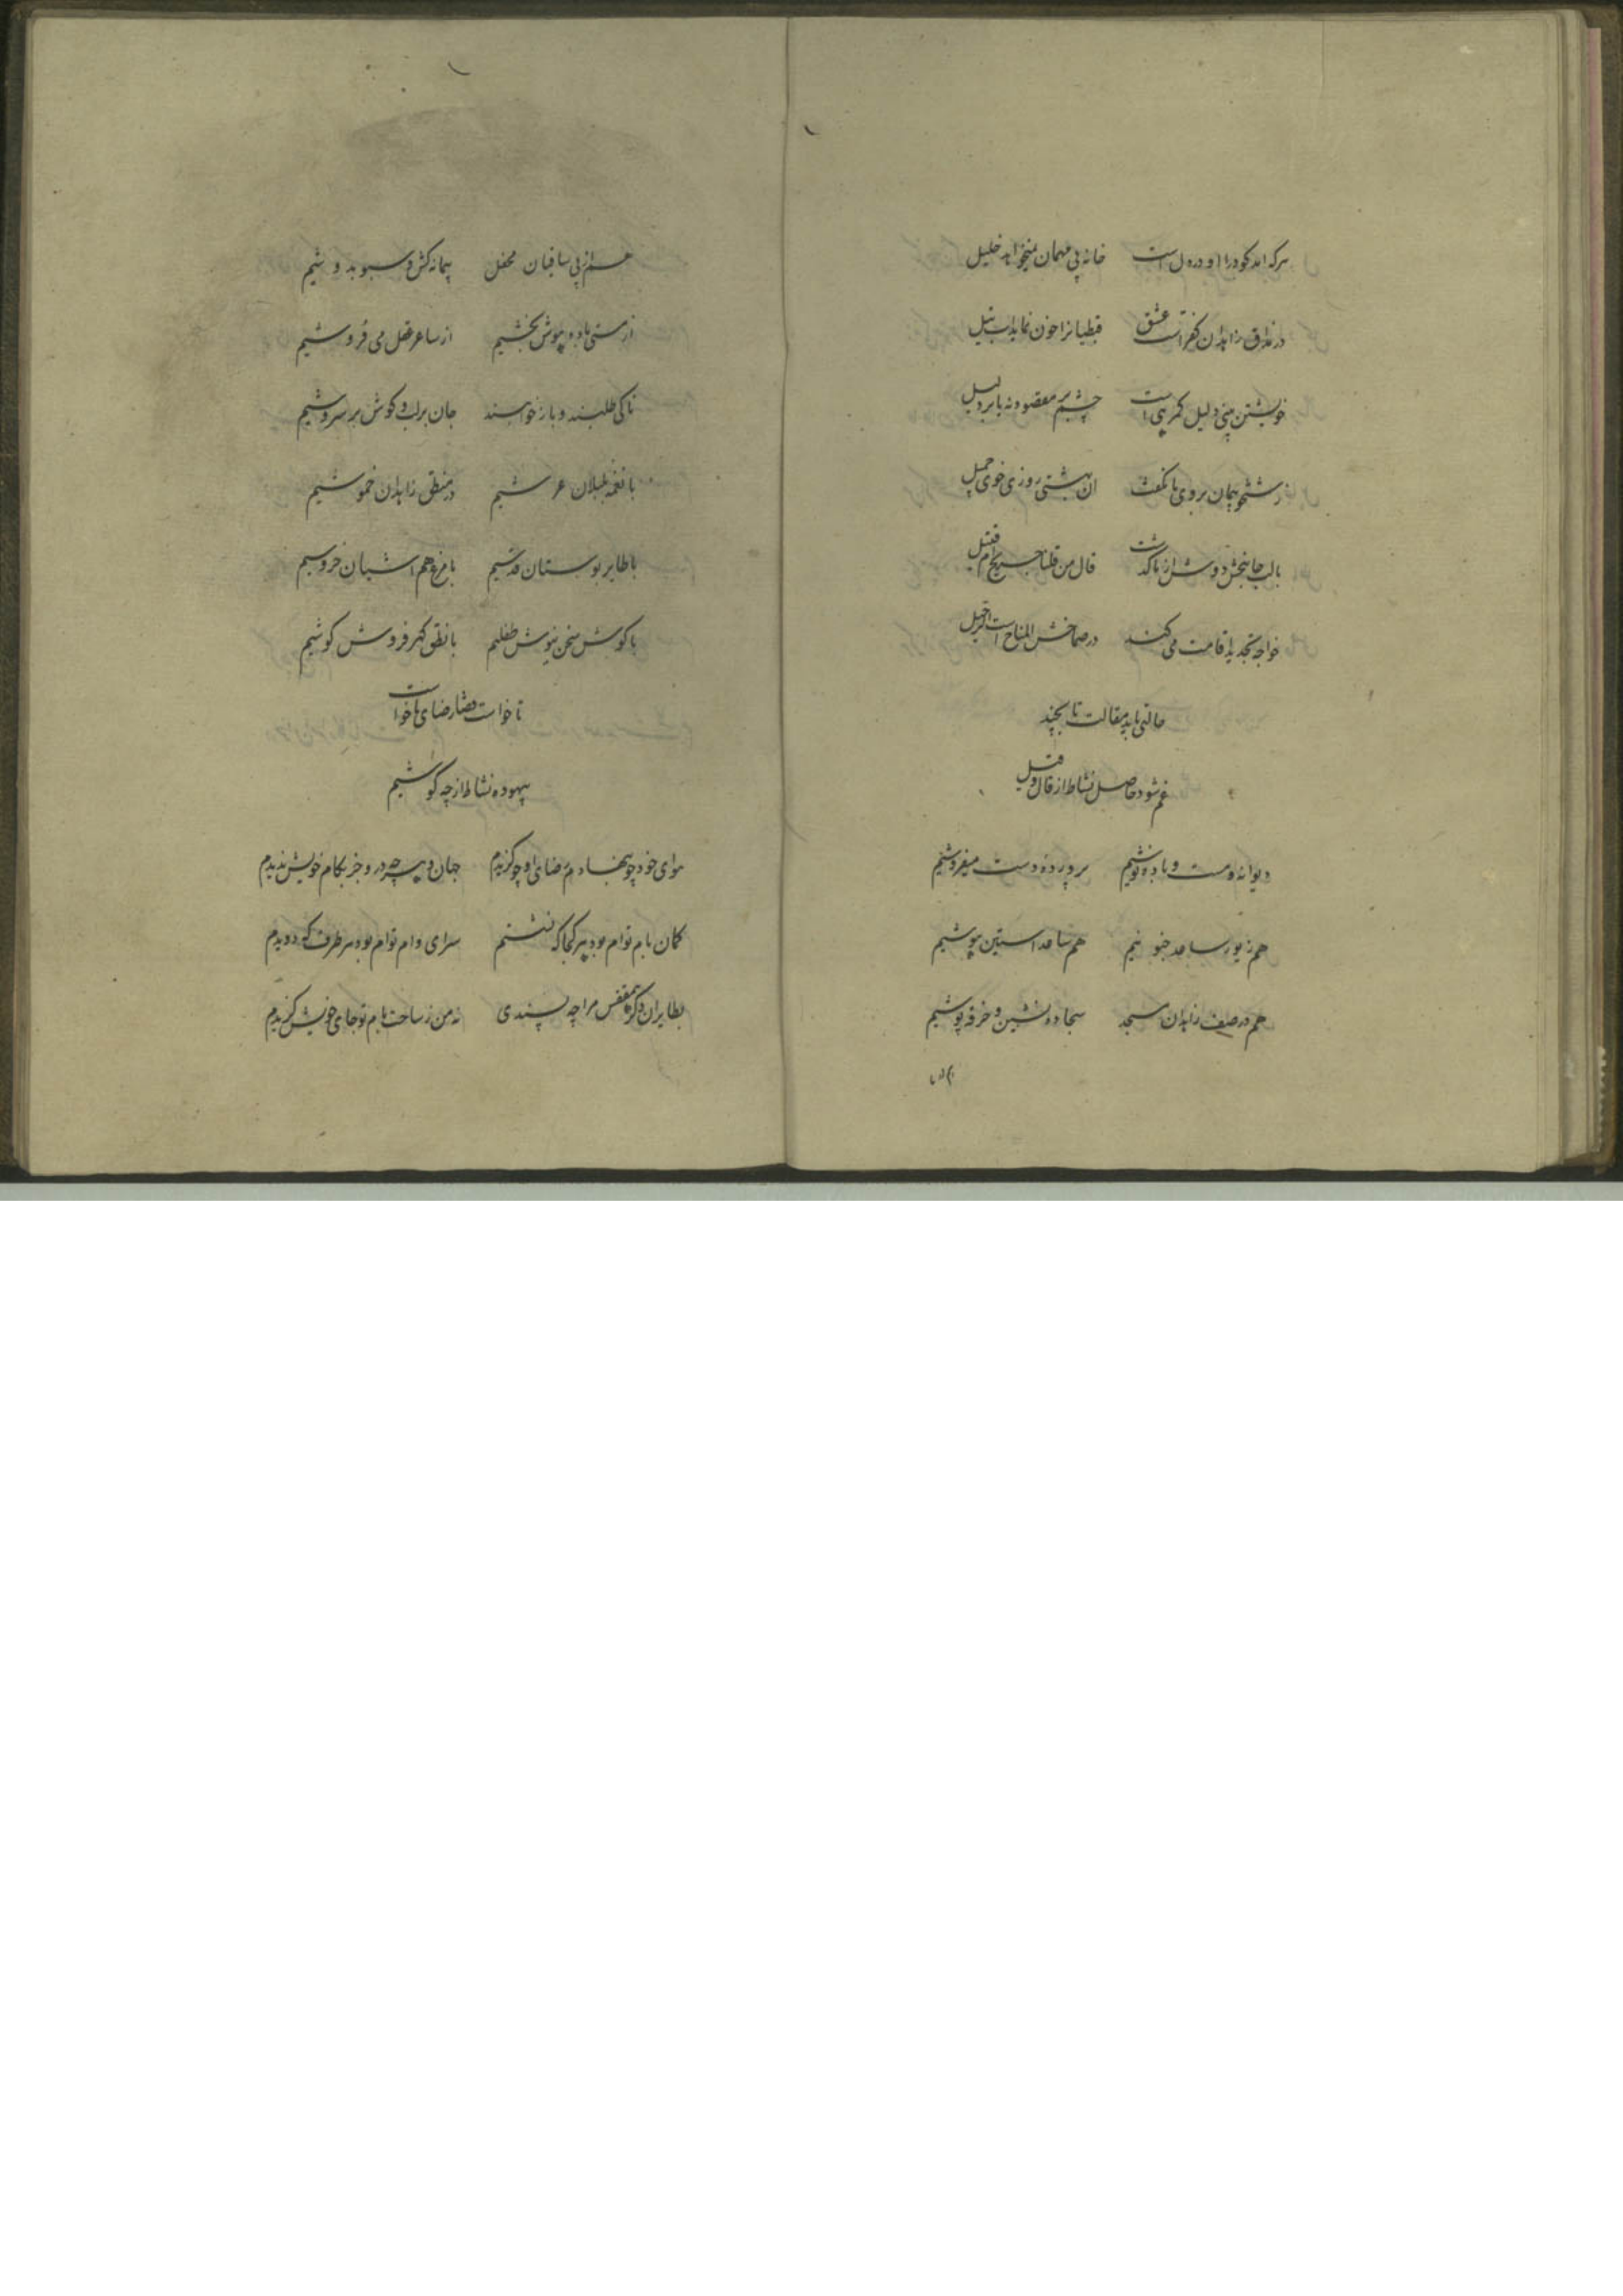 هرکه اید کو درا او در دل است خانه بی مهمان نمیخواهد خلیل
در مذاق زاهدان کفر است عشق قبطیانرا خون نماید اب نیل
خویشتن بینی دلیل کمرهی است چشم بر مقصود نه یا بر دلیل
زشتخویهان روی ما نکفت ان بهشتی روزی خوی جمیل
با لب جانبخش دوش از ما گذشت قال من قلنا جریح ام قتیل
خواجه تجدید اقامت می کند در صماخش المناخ است الرحیل
حالتی باید مقالت تا بچند
غم شود حاصل نشاط از قال و قیل
دیوانه و مست و باده نوشیم پرورده دست میفروشیم
هم زیور ساعد جنونیم هم ساعد استین پوشیم
هم در صف زاهدان مسجد سجاده نشین و خرقه پوشیم
هم از پی ساقیان محفل پیمانه کش و سبو بدوشیم
از مستی باده هوش بخشیم از ساغر عقل می فروشیم
تا کی طلبند و باز خواهند جان بر لب و کوش بر سروشیم
با نغمه بلبلان عرشیم در منطق زاهدان خموشیم
با طایر بوستان قدسیم با مرغ هم اشیان خروشیم
با کوش سخن نیوش طفلیم با نطق کهر فروش کوشیم
تا خواست قضا رضای ما خواست
بیهوده نشاط از چه کوشیم
هوای خود چو نهادم رضای او چو کزیدم جهان و هر چه در و جز بکام خویش ندیدم
کمان بام توام بود بهر کجا که نشستم سرای و ام توام بود هر طرف که دویدم
بطایران دکر همقفس مرا چه پسندی نه من ز ساحت بام تو جای خویش کزیدم